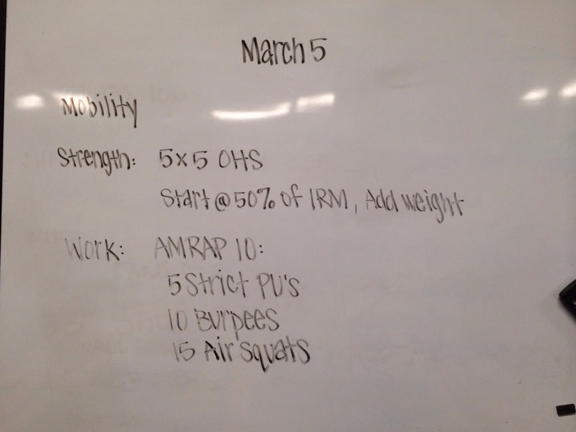 March 5
Mobility
Strength: 5x5 OHS
Start @ 50% of 1RM, Add weight
Work: AMRAP 10:
5 Strict PU's
10 Burpees
15 Air Squats